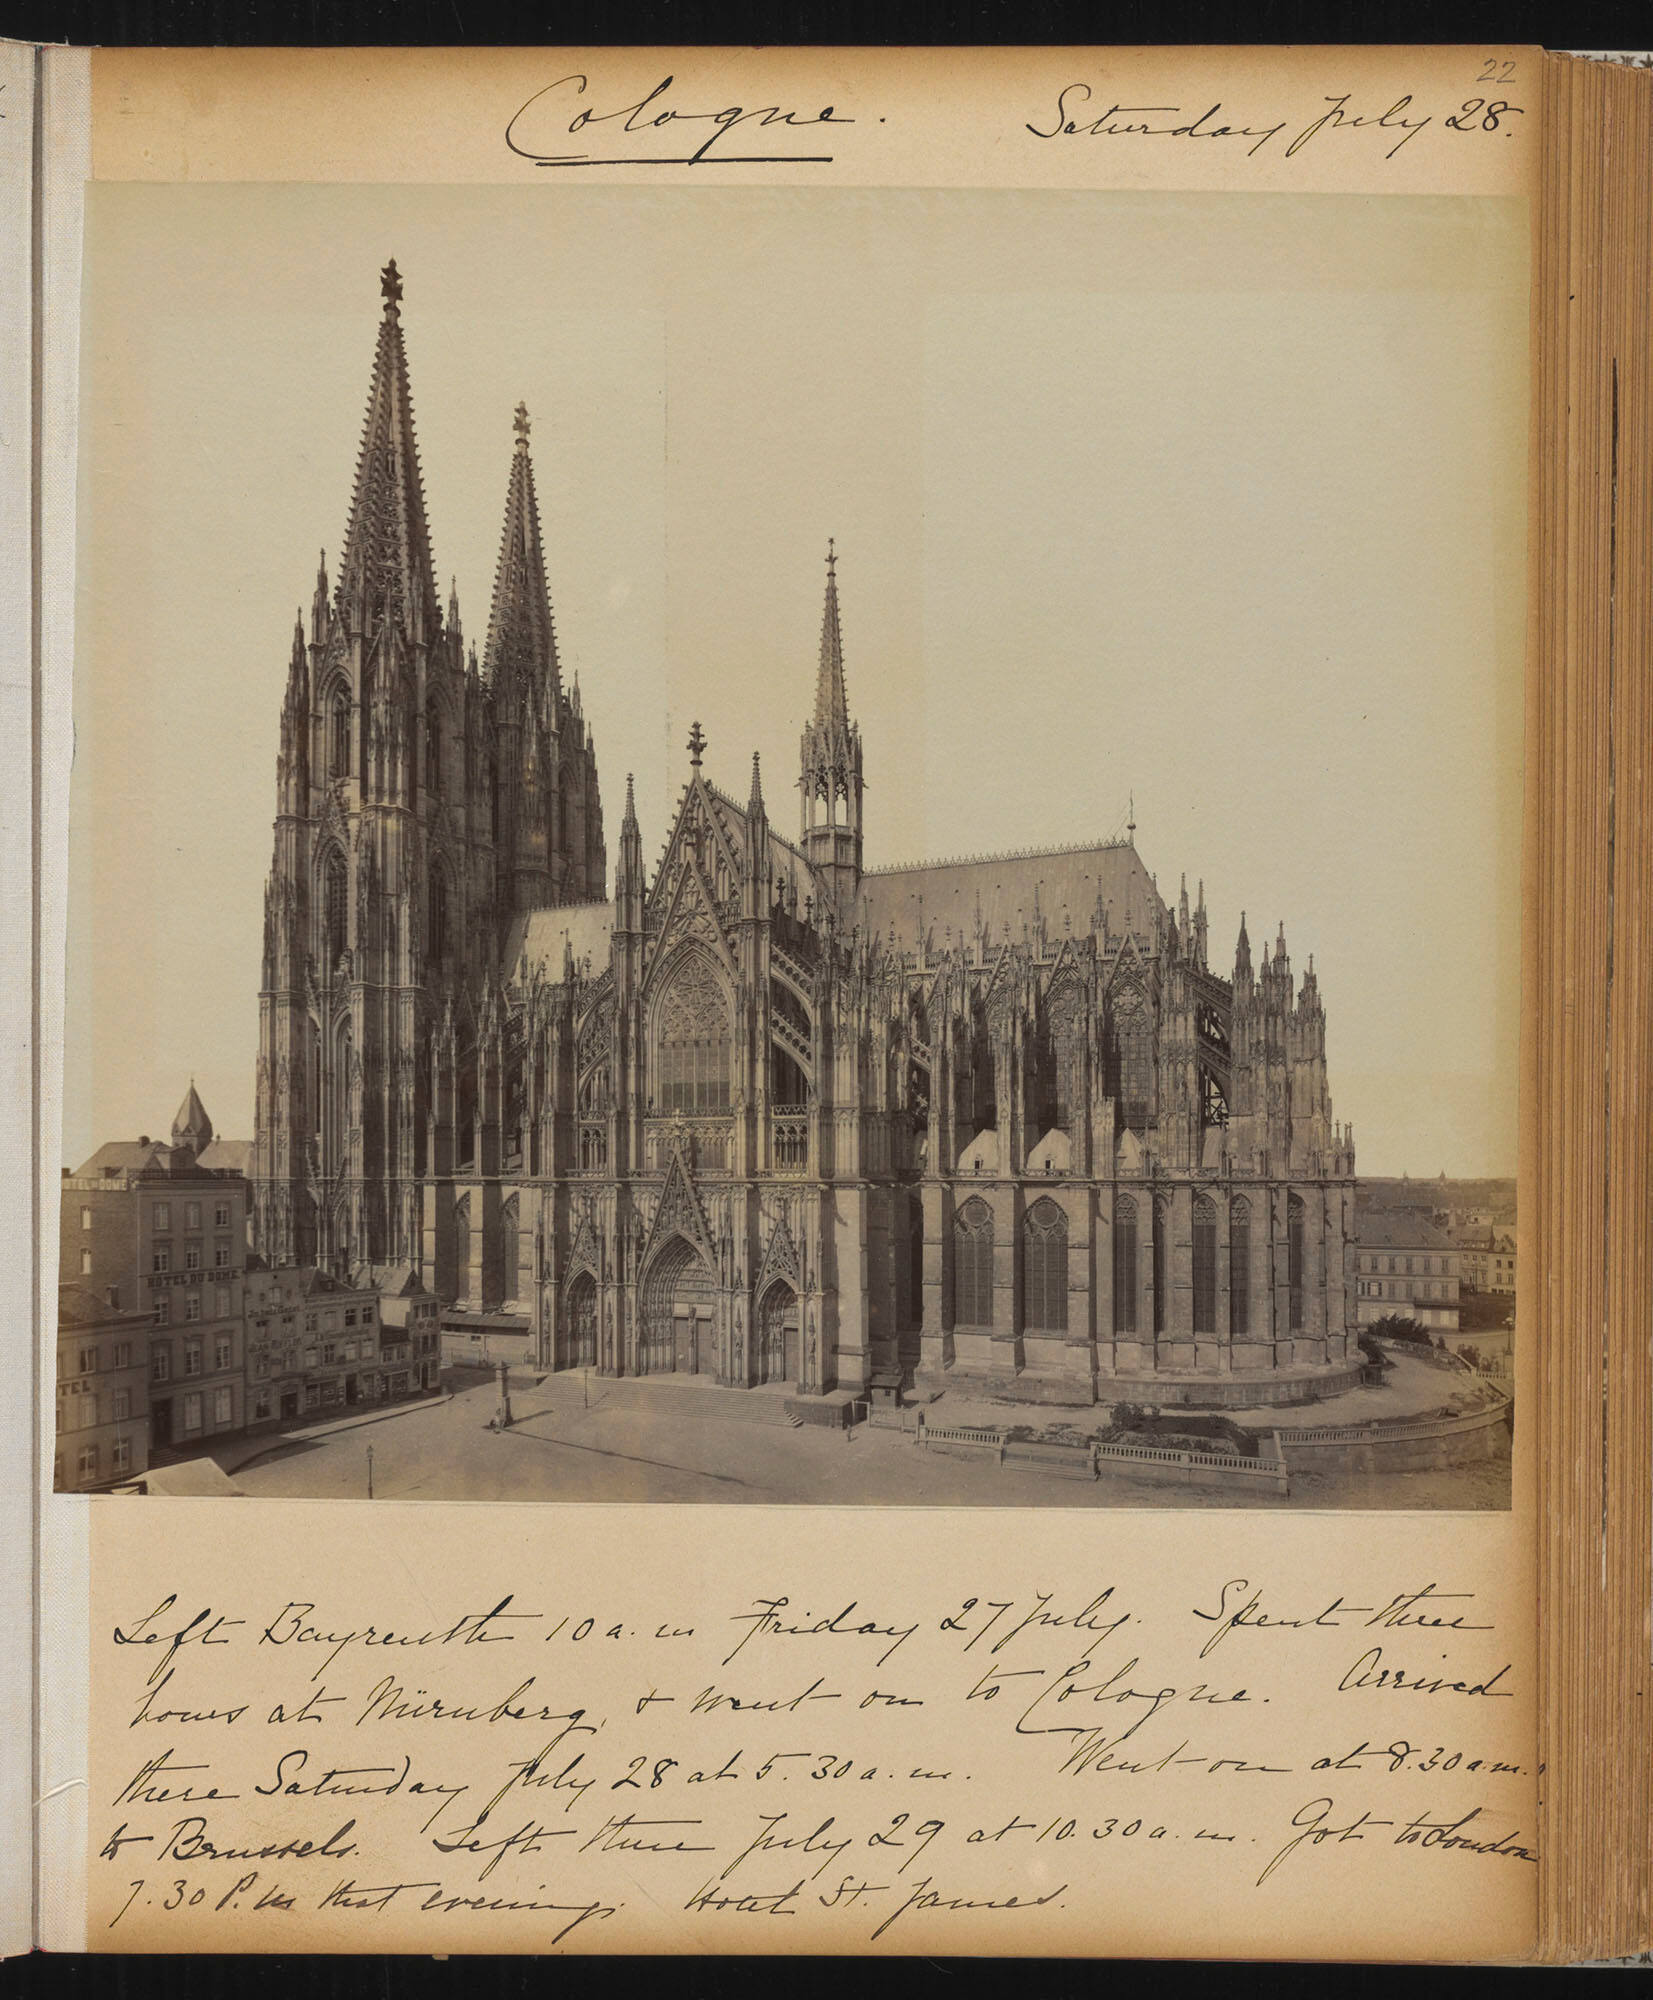 22
Cologne. Saturday July 28.
HOTEL DU DOME
Left Bayreuth 10 a. m Friday 27 July. Spent three
hours at Nürnberg, & went on to Cologne. Arrived
there Saturday July 28 at 5.30 a. m. Went on at 8.30 a.m.
to Brussels. Left there July 29 at 10.30 a. m. Got to London
7.30 P. M that evening. Hotel St. James.